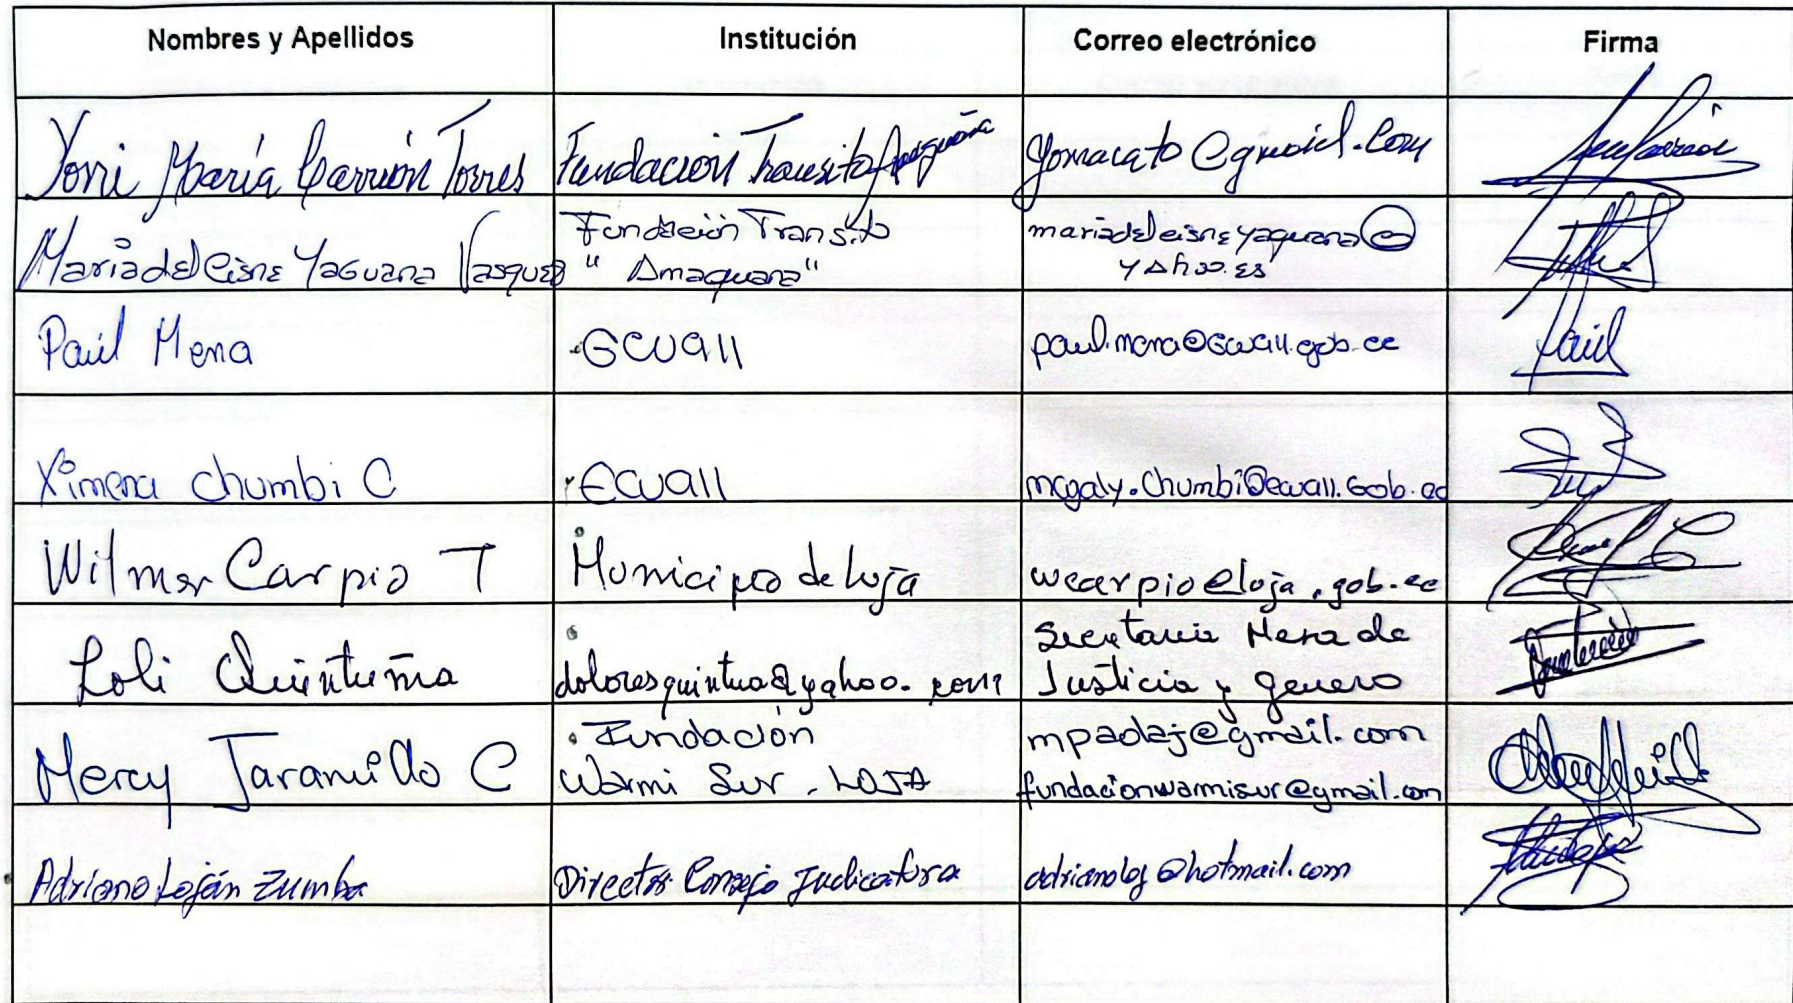 Nombres y Apellidos Institución Correo electrónico Firma
Yomi María Carrión Torres Fundación Transito Amaguaña yomacato@gmail.com
Maria del Cisne Yaguana Vasquez Fundación Transito "Amaguana" mariadelcisneyaguana@
yahoo.es
Paúl Mena ECU911 paul.mena@ecu911.gob.ec Paúl
Ximena Chumbi C ECU911 magaly.chumbi@ecu911.Gob.ec
Wilmer Carpio T Municipio de Loja wcarpio@loja.gob.ec
Loli Quintuña doloresquintua@yahoo.com Secretaria Mesa de
Justicia y genero
Mercy Jaramillo C Fundación mpaolaj@gmail.com
Warmi Sur - LOJA fundacionwarmisur@gmail.com
Adriano Loján Zumba Director Consejo Judicatura adrianoloj@hotmail.com